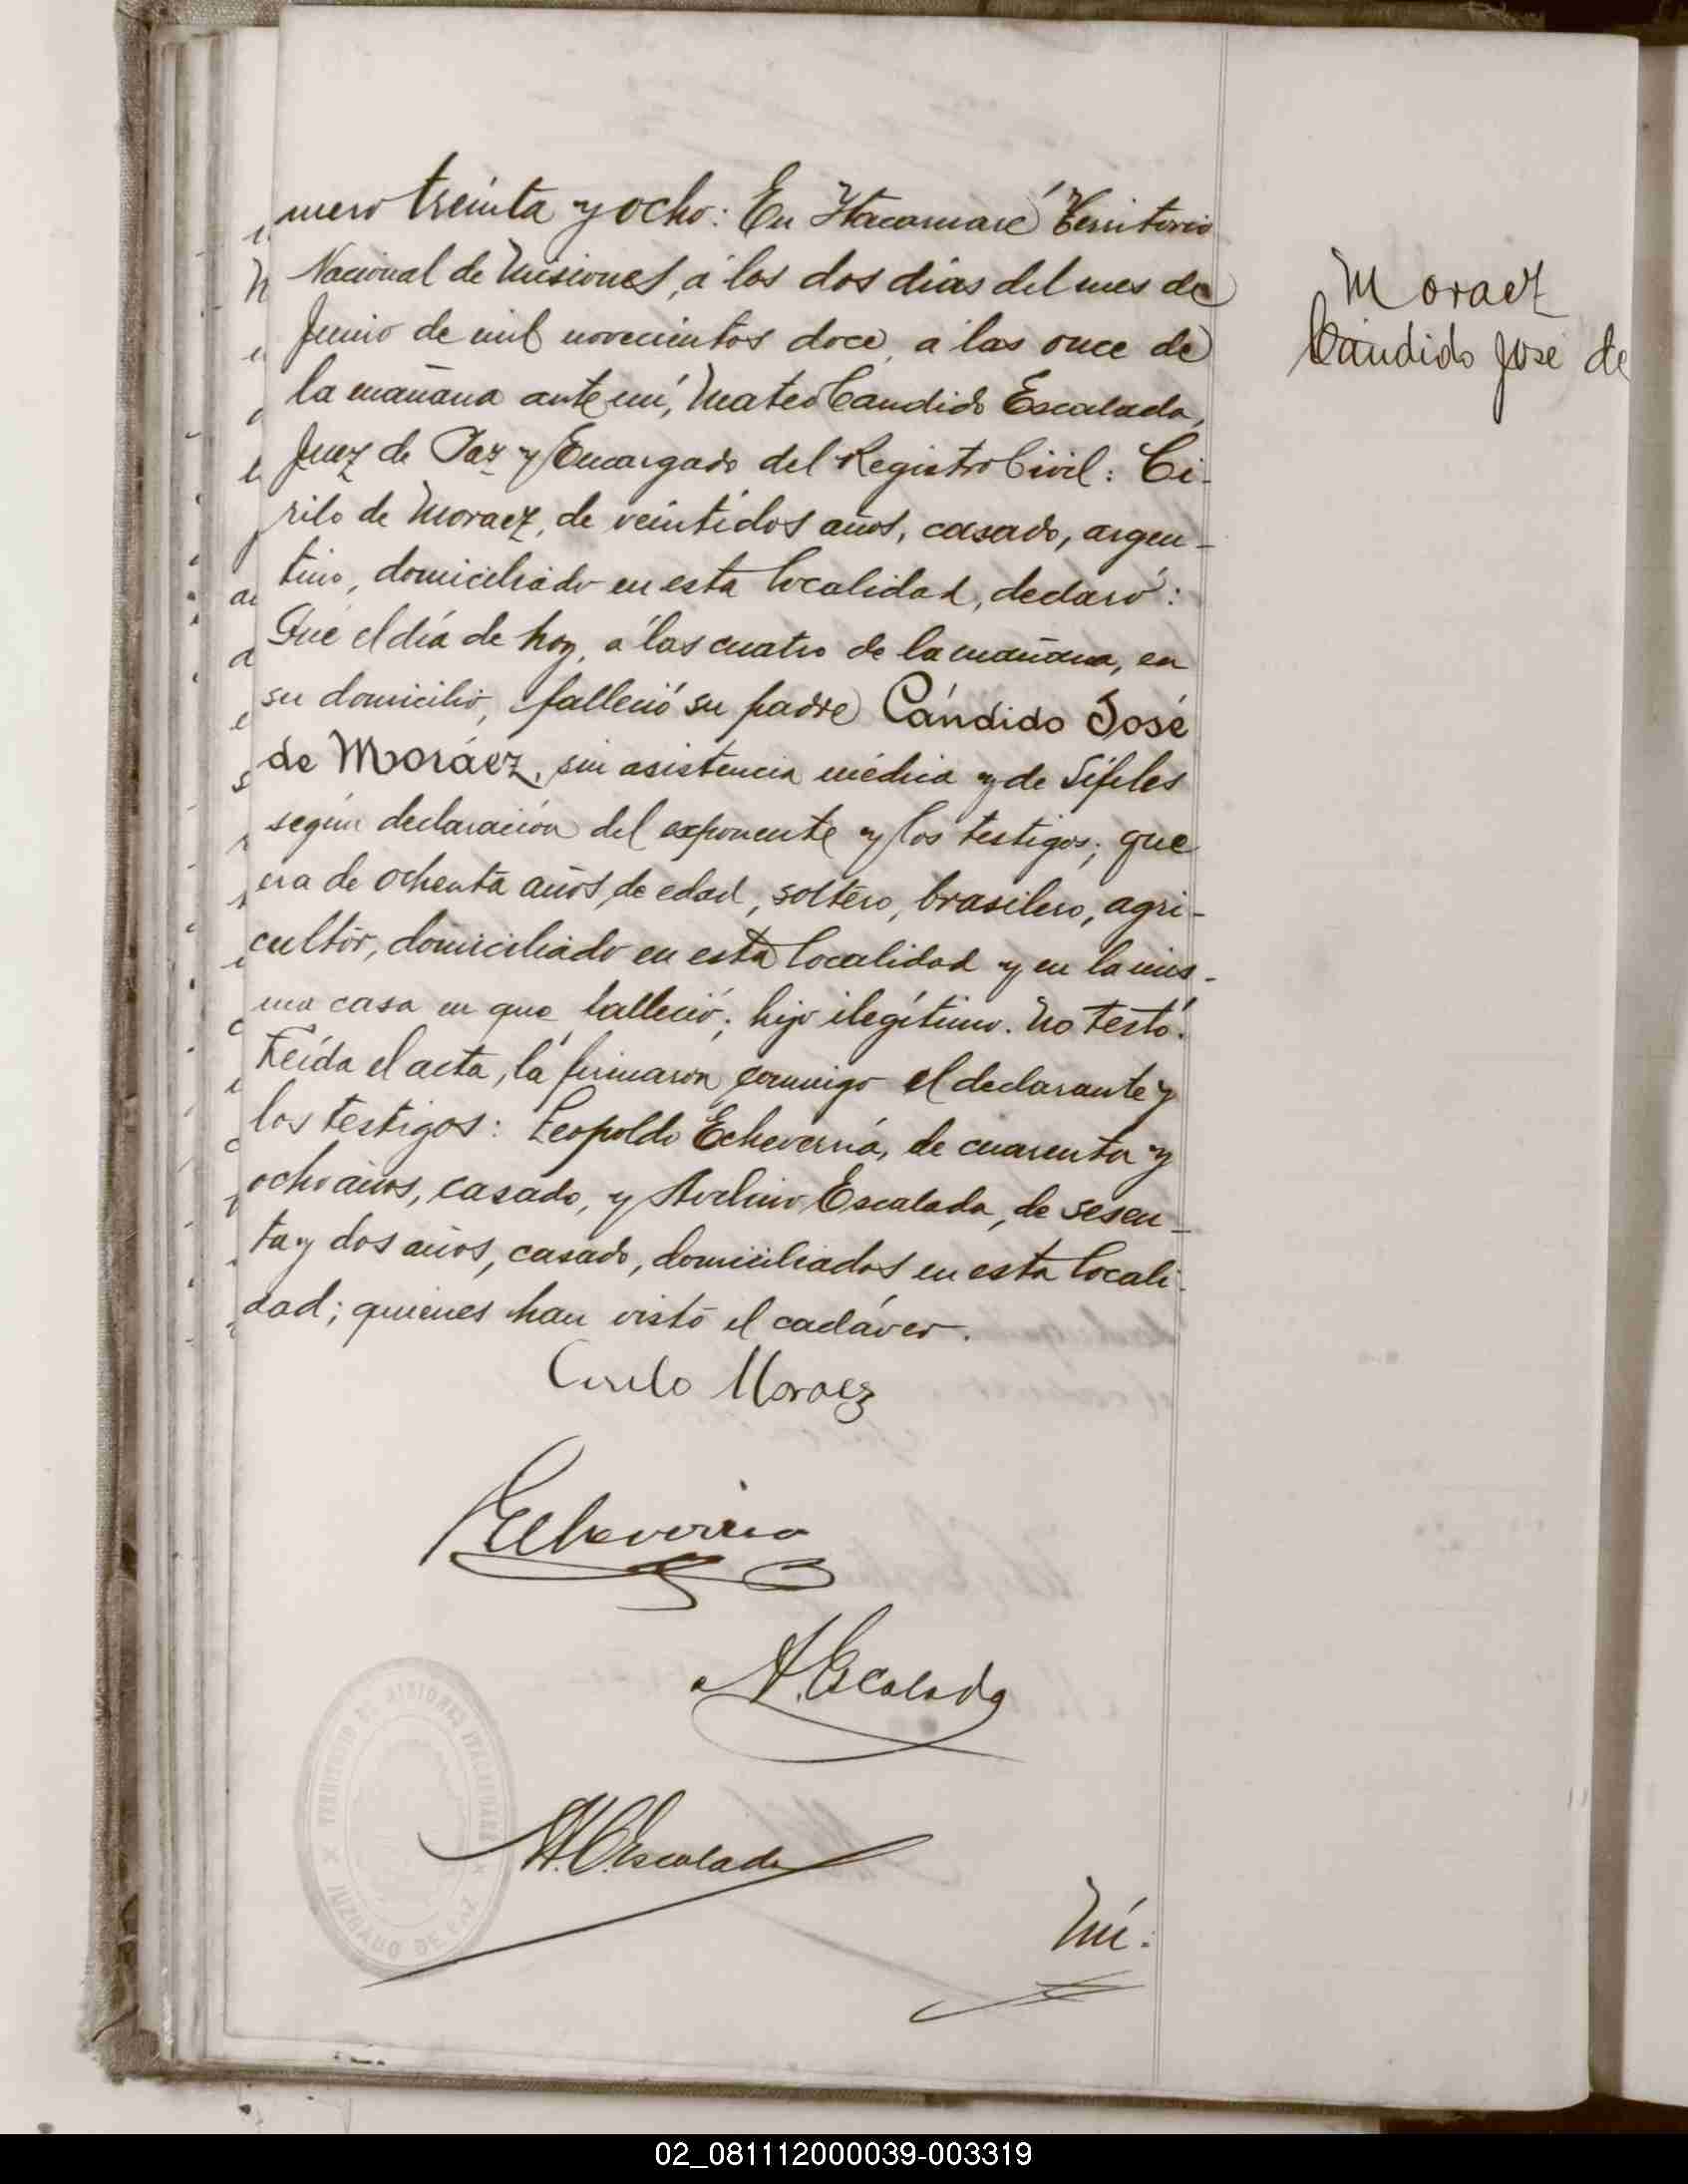 mero treinta y ocho: En Itacaruaré Territorio
Nacional de Misiones, á los dos dias del mes de
Junio de mil novecientos doce, a las once de
la mañana ante mí, Mateo Candido Escalada,
Juez de Paz y Encargado del Registro Civil: Ci-
rilo de Moraez, de veintidos años, casado, argen-
tino, domiciliado en esta localidad, declaró:
Que el día de hoy, a las cuatro de la mañana, en
su domicilio, falleció su padre Cándido José
de Moráez, sin asistencia médica y de Sífiles
según declaración del exponente y los testigos; que
era de ochenta años de edad, soltero, brasilero, agri-
cultor, domiciliado en esta localidad y en la mis-
ma casa en que falleció; hijo ilegítimo. No testó.
Leída el acta, la firmaron conmigo el declarante y
los testigos: Leopoldo Echeverría, de cuarenta y
ocho años, casado, y Avelino Escalada, de sesen-
ta y dos años, casado, domiciliados en esta locali-
dad; quienes han visto el cadáver.
Moraez
Cándido José de
Cirilo Moraez
LEcheverria
A. Escalada
M. C. Escalada
TERRITORIO DE MISIONES
JUZGADO DE PAZ
Nú:
02_081112000039-003319